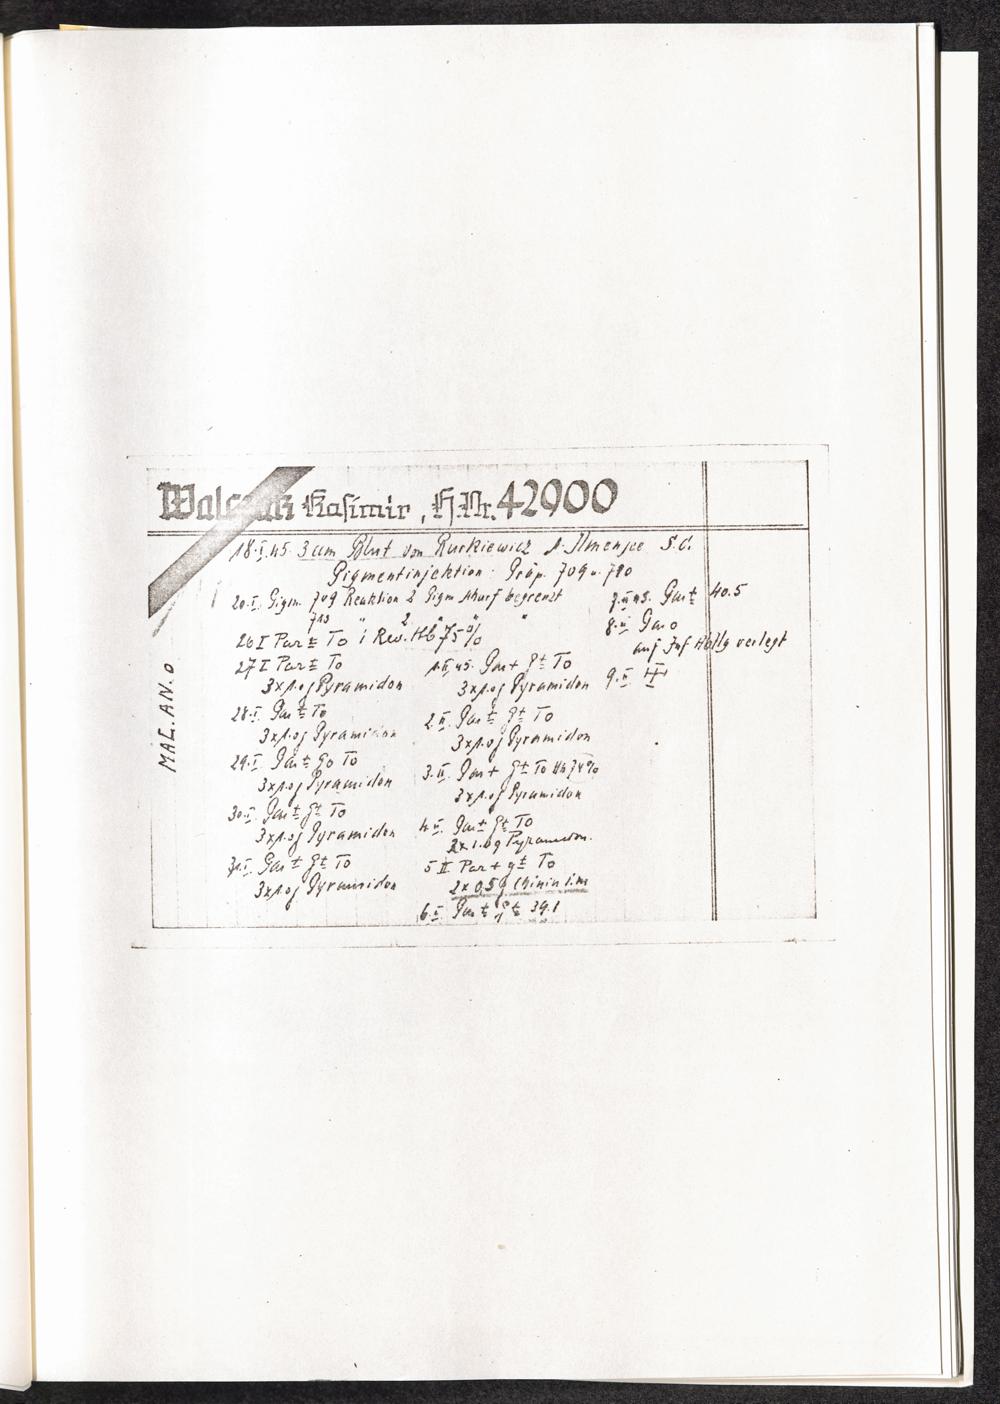 Kasimir, H.Nr. 42900
18.I.45. 3 ccm Blut von Kurkiewicz S.C.
Pigmentinjektion: Präp. 709 u. 710
20.I. Pigm. 709 Reaktion 2 Pigm scharf begrenzt
710 " 2 " " "
26 I Par ± To i Rev. Hb 75%
27 I Par ± To
3x1.0g Pyramidon
28.I. Par ± To
3x1.0g Pyramidon
29.I. Par ± Go To
3x1.0g Pyramidon
30.I. Par ± G± To
3x1.0g Pyramidon
31.I. Par ± G± To
3x1.0g Pyramidon
1.II.45. Par + G± To
3x1.0g Pyramidon
2.II. Par ± G± To
3x1.0g Pyramidon
3.II. Par + G± To Hb 74%
3x1.0g Pyramidon
4.II. Par ± G± To
2x1.0g Pyramidon.
5 II Par + G± To
2x0,5g Chinin i.m
6.II. Par ± G± 39.1
7.II.45. Par ± 40.5
8.II. Par o
auf Inf Abtlg verlegt
9.II.
MAL. AN. o